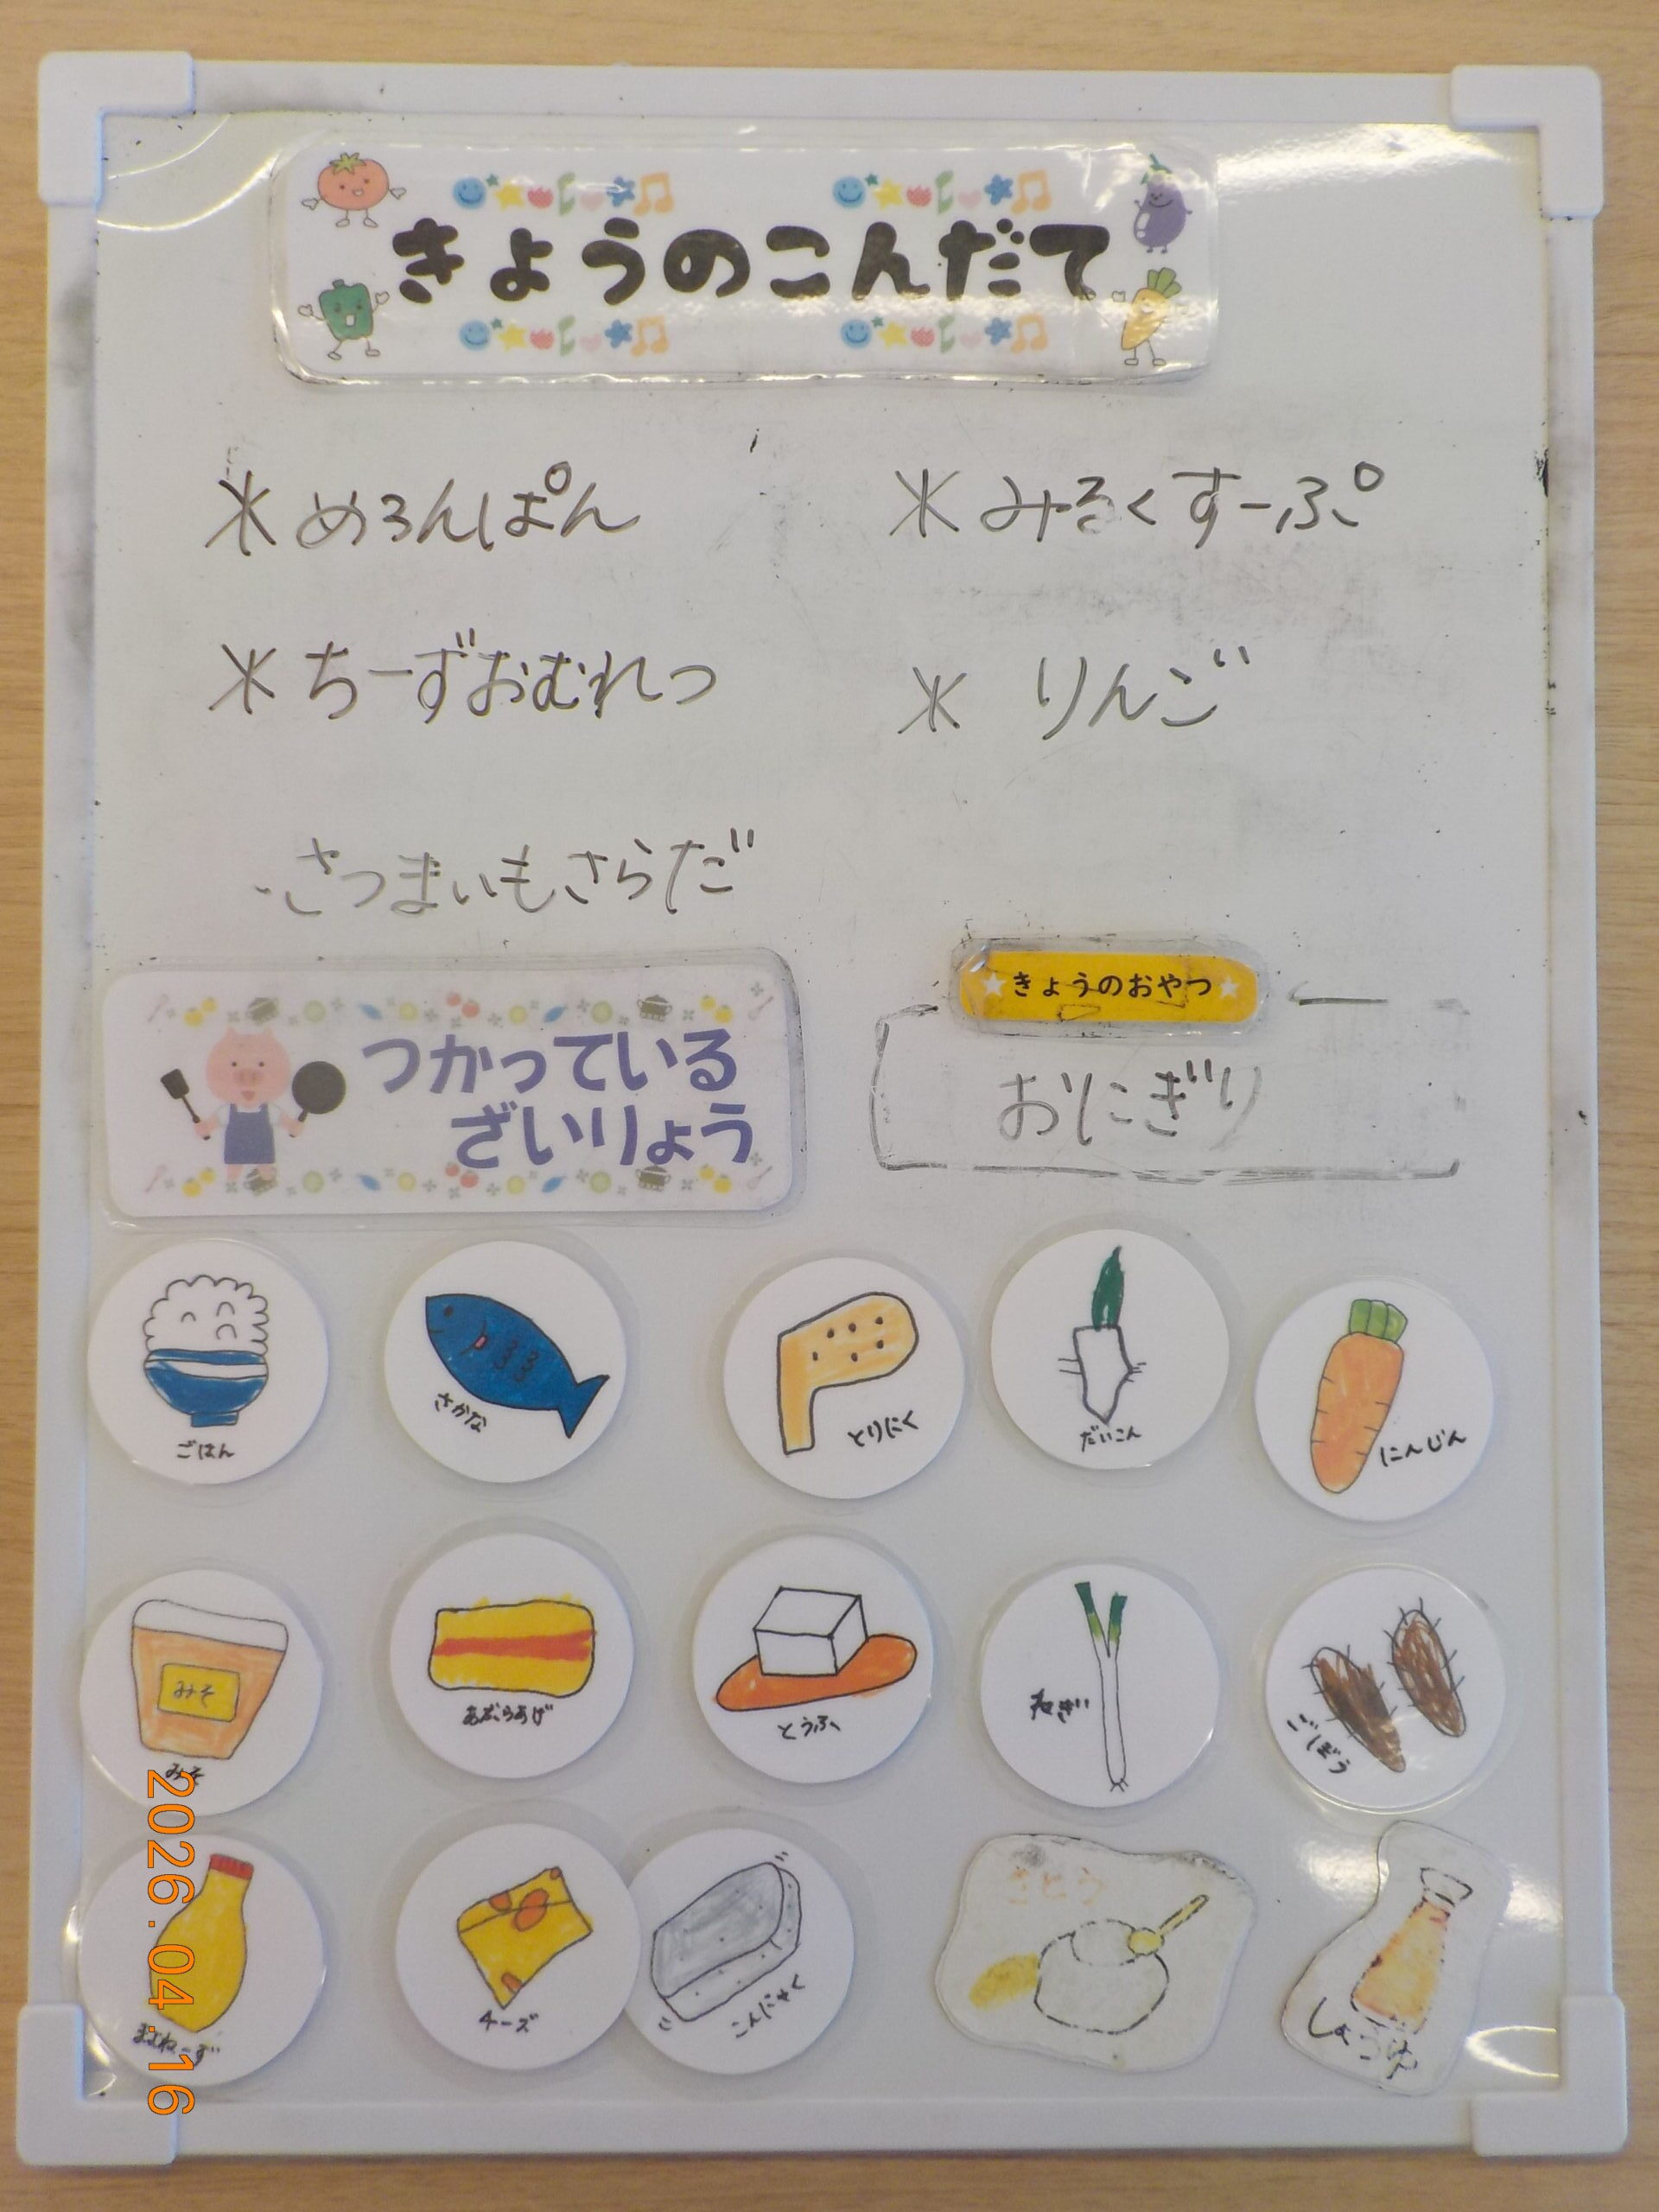 きょうのこんだて
※ めろんぱん
※ みるくすーぷ
※ ちーずおむれつ
※ りんご
・さつまいもさらだ
つかっている
ざいりょう
きょうのおやつ
おにぎり
ごはん
さかな
とりにく
だいこん
にんじん
みそ
みそ
あぶらあげ
とうふ
ねぎ
ごぼう
まよねーず
チーズ
こんにゃく
さとう
しょうゆ
2026.04.16